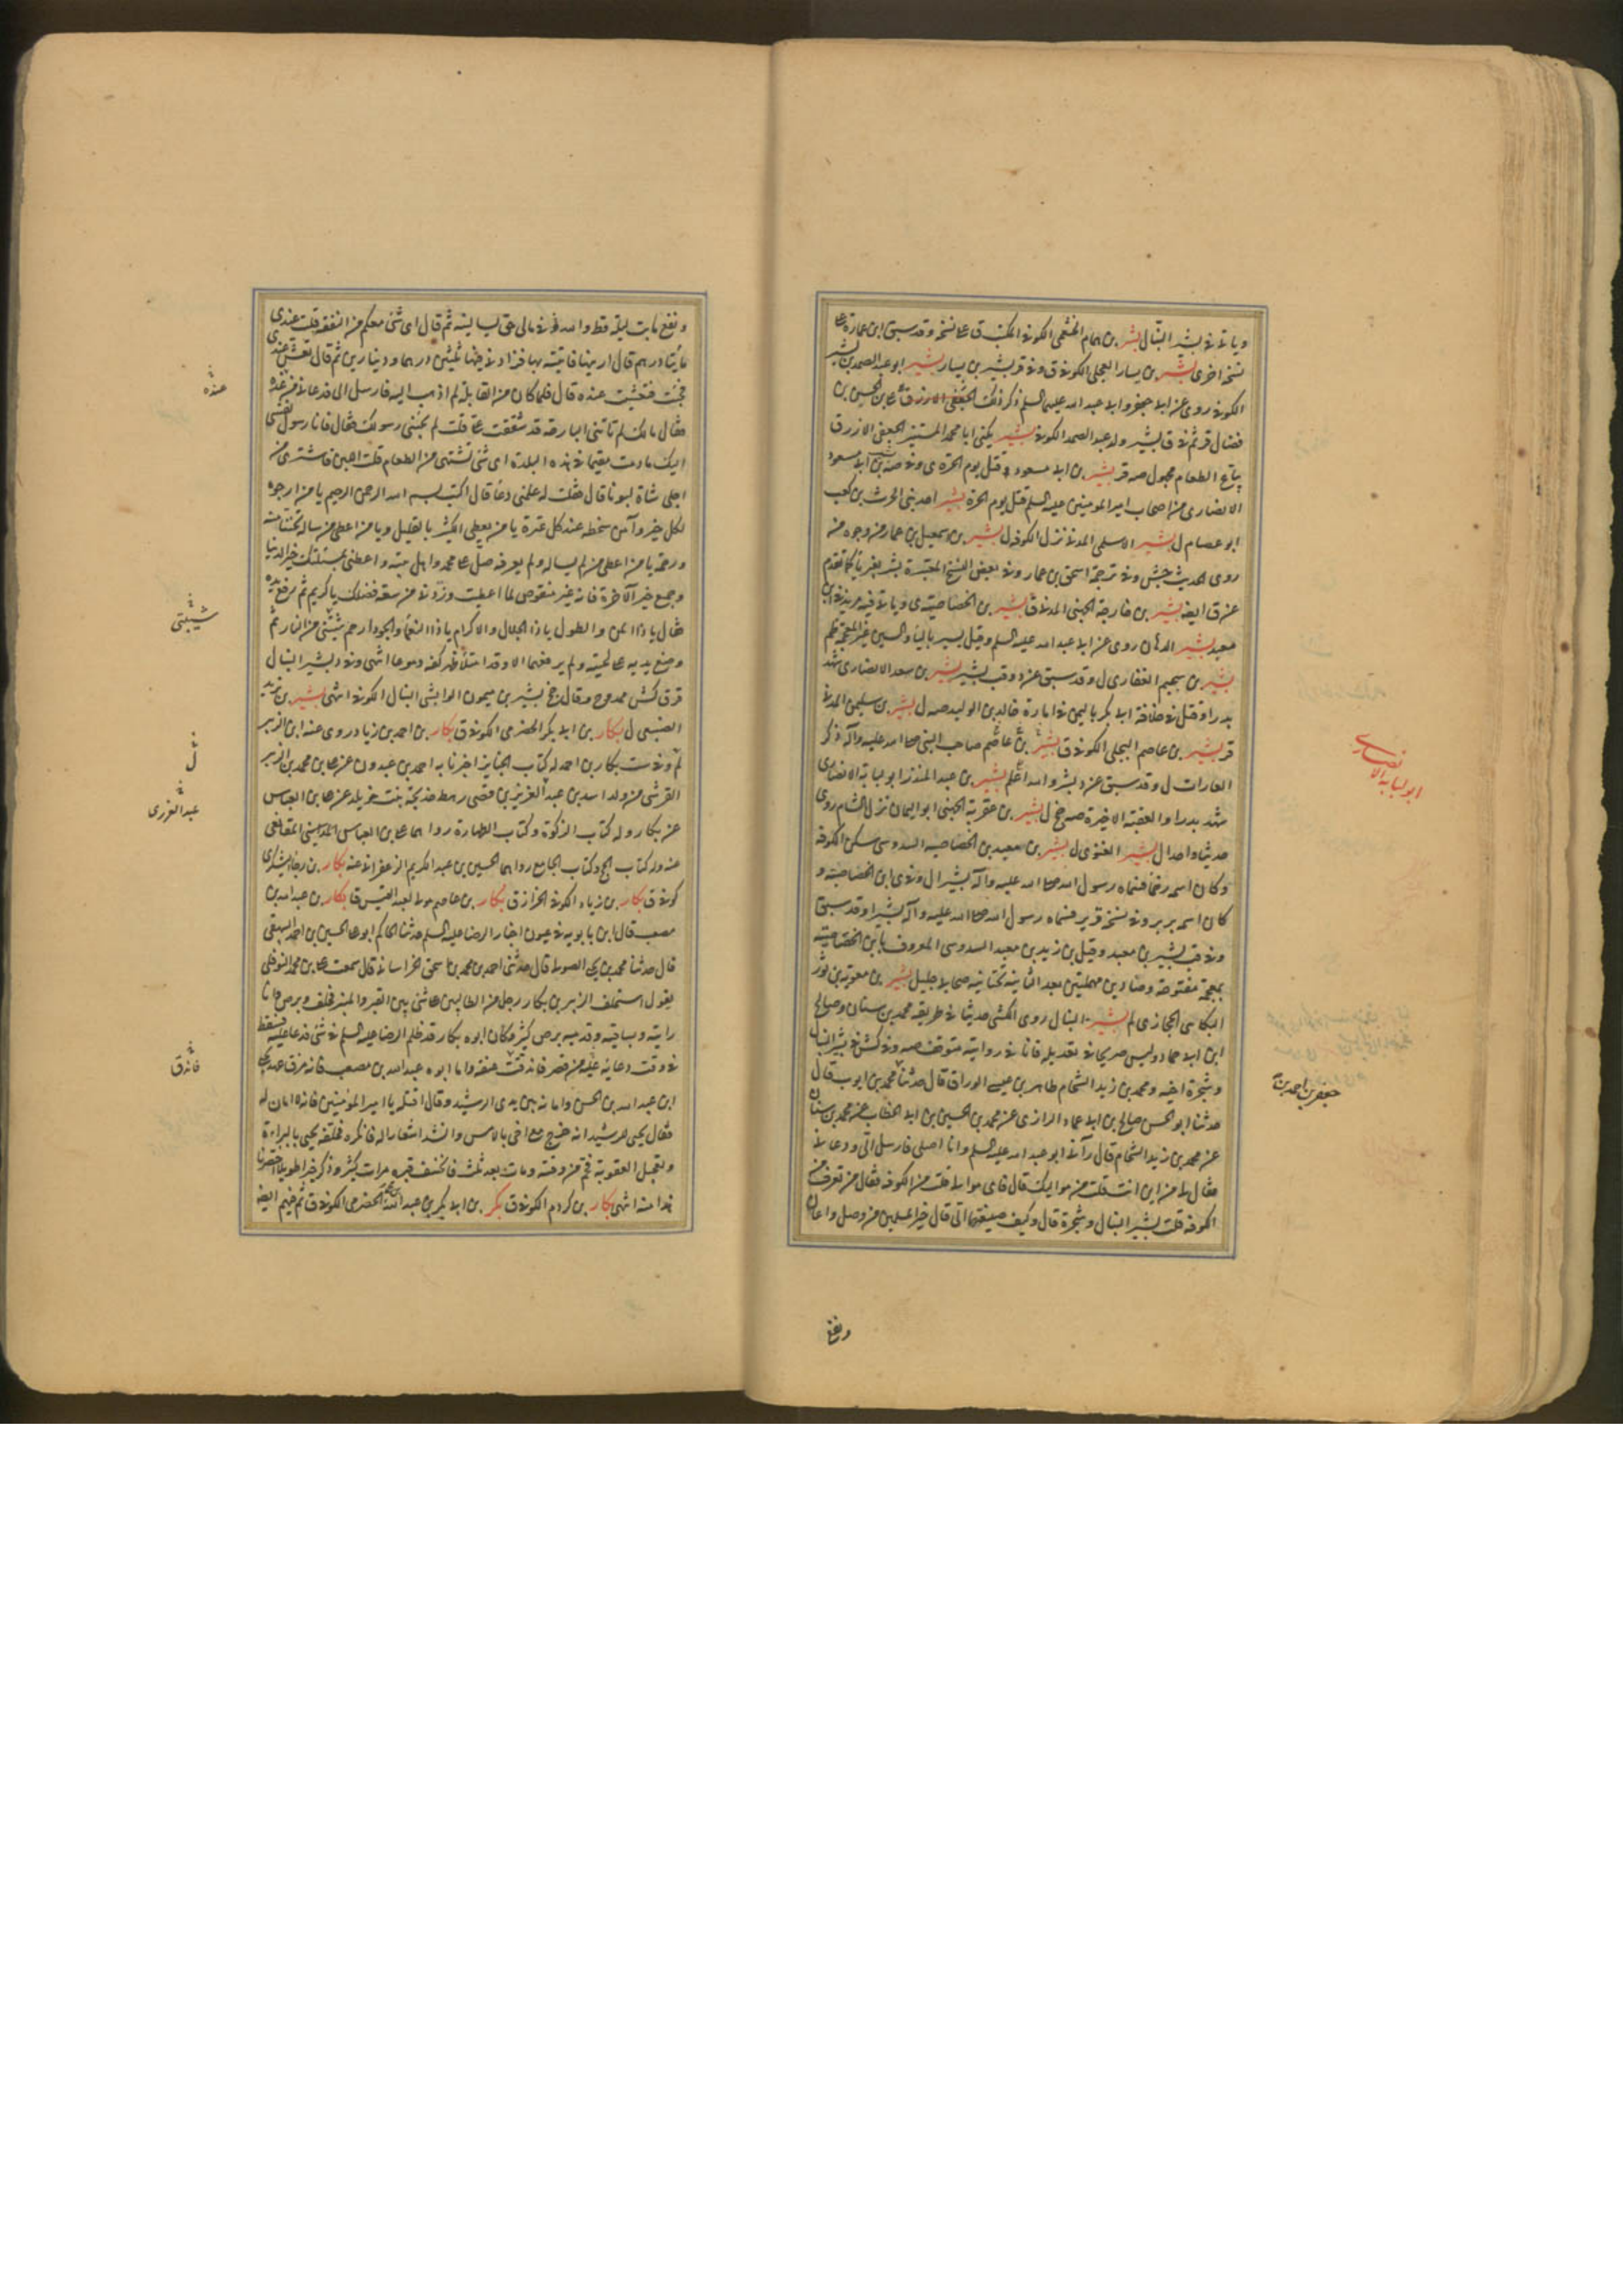 وياتى فى بشير النبال بشر بن همام الخثعمى الكوفى المكتب ق على نسخه وقد سبق ابن عمارة على
نسخه اخرى بشر بن يسار العجلى الكوفى ق وفى قر بشير بن يسار بشير ابو عبد الصمد بن بشير
الكوفى روى عن ابى جعفر وابى عبد الله عليهما السلم ذكر ذلك الجعفى الازرق على بن الحسن بن
فضال قر ثم فى ق بشير ولد عبد الصمد الكوفى بشير يكنى ابا محمد المستنير الجعفى الازرق
بياع الطعام مجهول صه قر بشير بن ابى مسعود قتل يوم الحرة ى وفى صه بن ابى مسعود
الانصارى من اصحاب امير المومنين عليه السلم قتل يوم الحرة بشير احد بنى الحرث بن كعب
ابو عصام ل بشير الاسلمى المدنى نزل الكوفه ل بشير بن اسمعيل بن عمار من وجوه من
روى الحديث جش وفى ترجمة اسحق بن عمار وفى بعض النسخ المعتبرة بشر بغير ياء كما تقدم
عن ق ايضه بشير بن خارجة الجهنى المدنى ق بشير بن الخصاصيه ى وياتى فيه مزيد فى ابن
معبد بشير الدهان روى عن ابى عبد الله عليه السلم وقيل يسير بالياء والسين غير المعجمة ظم
بشير بن سحيم الغفارى ل وقد سبق عن د وقب بشير بشير بن سعد الانصارى شهد
بدرا وقتل فى خلافة ابى بكر باليمن فى امارة خالد بن الوليد صه ل بشير بن سليمن المدنى
قر بشير بن عاصم البجلى الكوفى ق بشير بن عاصم صاحب النبى صلى الله عليه وآله ذكر
الغارات ل وقد سبق عن د بشر والله اعلم بشير بن عبد المنذر ابو لبابة الانصارى
شهد بدرا والعقبة الاخيرة صه جخ ل بشير بن عقربة الجهنى ابو اليمان نزل الشام روى
حديثا واحدا ل بشير الغنوى ل بشير بن معبد بن الخصاصيه السدوسى سكن الكوفه
وكان اسمه زحما فسماه رسول الله صلى الله عليه وآله بشيرا ل وفى ى ابن الخصاصيه و
كان اسمه بربر وفى نسخه قرير فسماه رسول الله صلى الله عليه وآله بشيرا وقد سبق
وفى قب بشير بن معبد وقيل بن زيد بن معبد السدوسى المعروف بابن الخصاصيه
بمعجمة مفتوحة وصادين مهملتين بعد الثانية تحتانية صحابى جليل بشير بن معوية بن ثور
البكائى الحجازى لم بشير النبال روى الكشى حديثا فى طريقه محمد بن سنان وصالح
ابن ابى حماد وليس صريحا فى تعديله فانا فى روايته متوقف صه وفى كش فى بشير النبال
وشجرة اخيه ومحمد بن زيد الشحام طاهر بن عيسى الوراق قال حدثنا محمد بن ايوب قال
حدثنا ابو الحسن صالح بن ابى حماد الرازى عن محمد بن الحسين بن ابى الخطاب عن محمد بن سنان
عن محمد بن زيد الشحام قال رآنى ابو عبد الله عليه السلم وانا اصلى فارسل الى ودعانى
فقال لى من اين انت قلت من مواليك قال فاى موالى قلت من الكوفه فقال من تعرف من
الكوفه قلت بشير النبال وشجرة قال وكيف صنيعتهما الى قال خير المسلمين من وصل واعان
ونفع
ابو لبابه الانصارى
جعفر بن احمد بن
ونفع ما بت ليلة قط ولله فى مالى حق يسالنيه ثم قال اى شئ معكم من النفقه قلت عندى
مأيتا درهم قال ارنيها فاتيته بها فزادنى فيها ثلثين درهما ودينارين ثم قال تعش عندى
فجئت فتعشيت عنده قال فلما كان من القابلة لم اذهب اليه فارسل الى فدعانى من غده
فقال مالك لم تاتنى البارحه قد شفقت على قلت لم يجئنى رسولك فقال فانا رسول نفسى
اليك مادمت مقيما فى هذه البلدة اى شئ تشتهى من الطعام قلت اللبن فاشترى من
اجلى شاة لبونا قال فقلت له علمنى دعاء قال اكتب بسم الله الرحمن الرحيم يا من ارجوه
لكل خير وآمن سخطه عند كل عثرة يا من يعطى الكثير بالقليل ويا من اعطى من ساله تحننا منه
ورحمة يا من اعطى من لم يساله ولم يعرفه صل على محمد واهل بيته واعطنى بمسئلتك خير الدنيا
وجميع خير الآخرة فانه غير منقوص لما اعطيت وزدنى من سعة فضلك يا كريم ثم رفع يديه
فقال يا ذا المن والطول يا ذا الجلال والاكرام يا ذا النعماء والجود ارحم شيبتى من النار ثم
وضع يديه على لحيته ولم يرفعهما الا وقد امتلأ ظهر كفه دموعا انتهى وفى د بشير النبال
قر ق كش ممدوح وقال جخ بشير بن ميمون الوابشى النبال الكوفى انتهى بشير بن يزيد
الضبعى ل بكار بن ابى بكر الحضرمى الكوفى ق بكار بن احمد بن زياد روى عنه ابن الزبير
لم وفى ست بكار بن احمد له كتاب الجنايز اخبرنا به احمد بن عبدون عن على بن محمد بن الزبير
القرشى من ولد اسد بن عبد العزيز بن قصى رهط خديجة بنت خويلد عن على بن العباس
عن بكار وله كتاب الزكوة وكتاب الطهارة رواهما على بن العباس المقانعى
عنه وله كتاب الحج وكتاب الجامع رواهما الحسين بن عبد الكريم الزعفرانى عنه بكار بن رجا اليشكرى
كوفى ق بكار بن زياد الكوفى الخزاز ق بكار بن عاصم مولى لعبد القيس ق بكار بن عبد الله بن
مصعب قال ابن بابويه فى عيون اخبار الرضا عليه السلم حدثنا الحاكم ابو على الحسين بن احمد البيهقى
قال حدثنا محمد بن يحيى الصولى قال حدثنى احمد بن محمد بن اسحق الخراسانى قال سمعت على بن محمد النوفلى
يقول استحلف الزبير بن بكار رجل من الطالبيين على شئ بين القبر والمنبر فحلف وبرص فانا
رايته وبساقيه وقدميه برص كثير وكان ابوه بكار قد ظلم الرضا عليه السلم فى شئ فدعا عليه فسقط
فى وقت دعائه عليه من قصر فاندقت عنقه واما ابوه عبد الله بن مصعب فانه مزق عهد يحيى
ابن عبد الله بن الحسن وامانه بين يدى الرشيد وقال اقتله يا امير المؤمنين فانه لا امان له
فقال يحيى للرشيد انه خرج مع اخى بالامس وانشد اشعارا له فانكره فحلفه يحيى بالبراءة
وتعجيل العقوبة فحم من وقته ومات بعد ثلث فانخسف قبره مرات كثيرة وذكر خبرا طويلا اختصرنا
هذا منه انتهى بكار بن كردم الكوفى ق بكر بن ابى بكر بن عبد الله بن محمد الحضرمى الكوفى ق ثم فيهم ايضه
عنده
شيبتى
ل
عبد العزى
فاندق